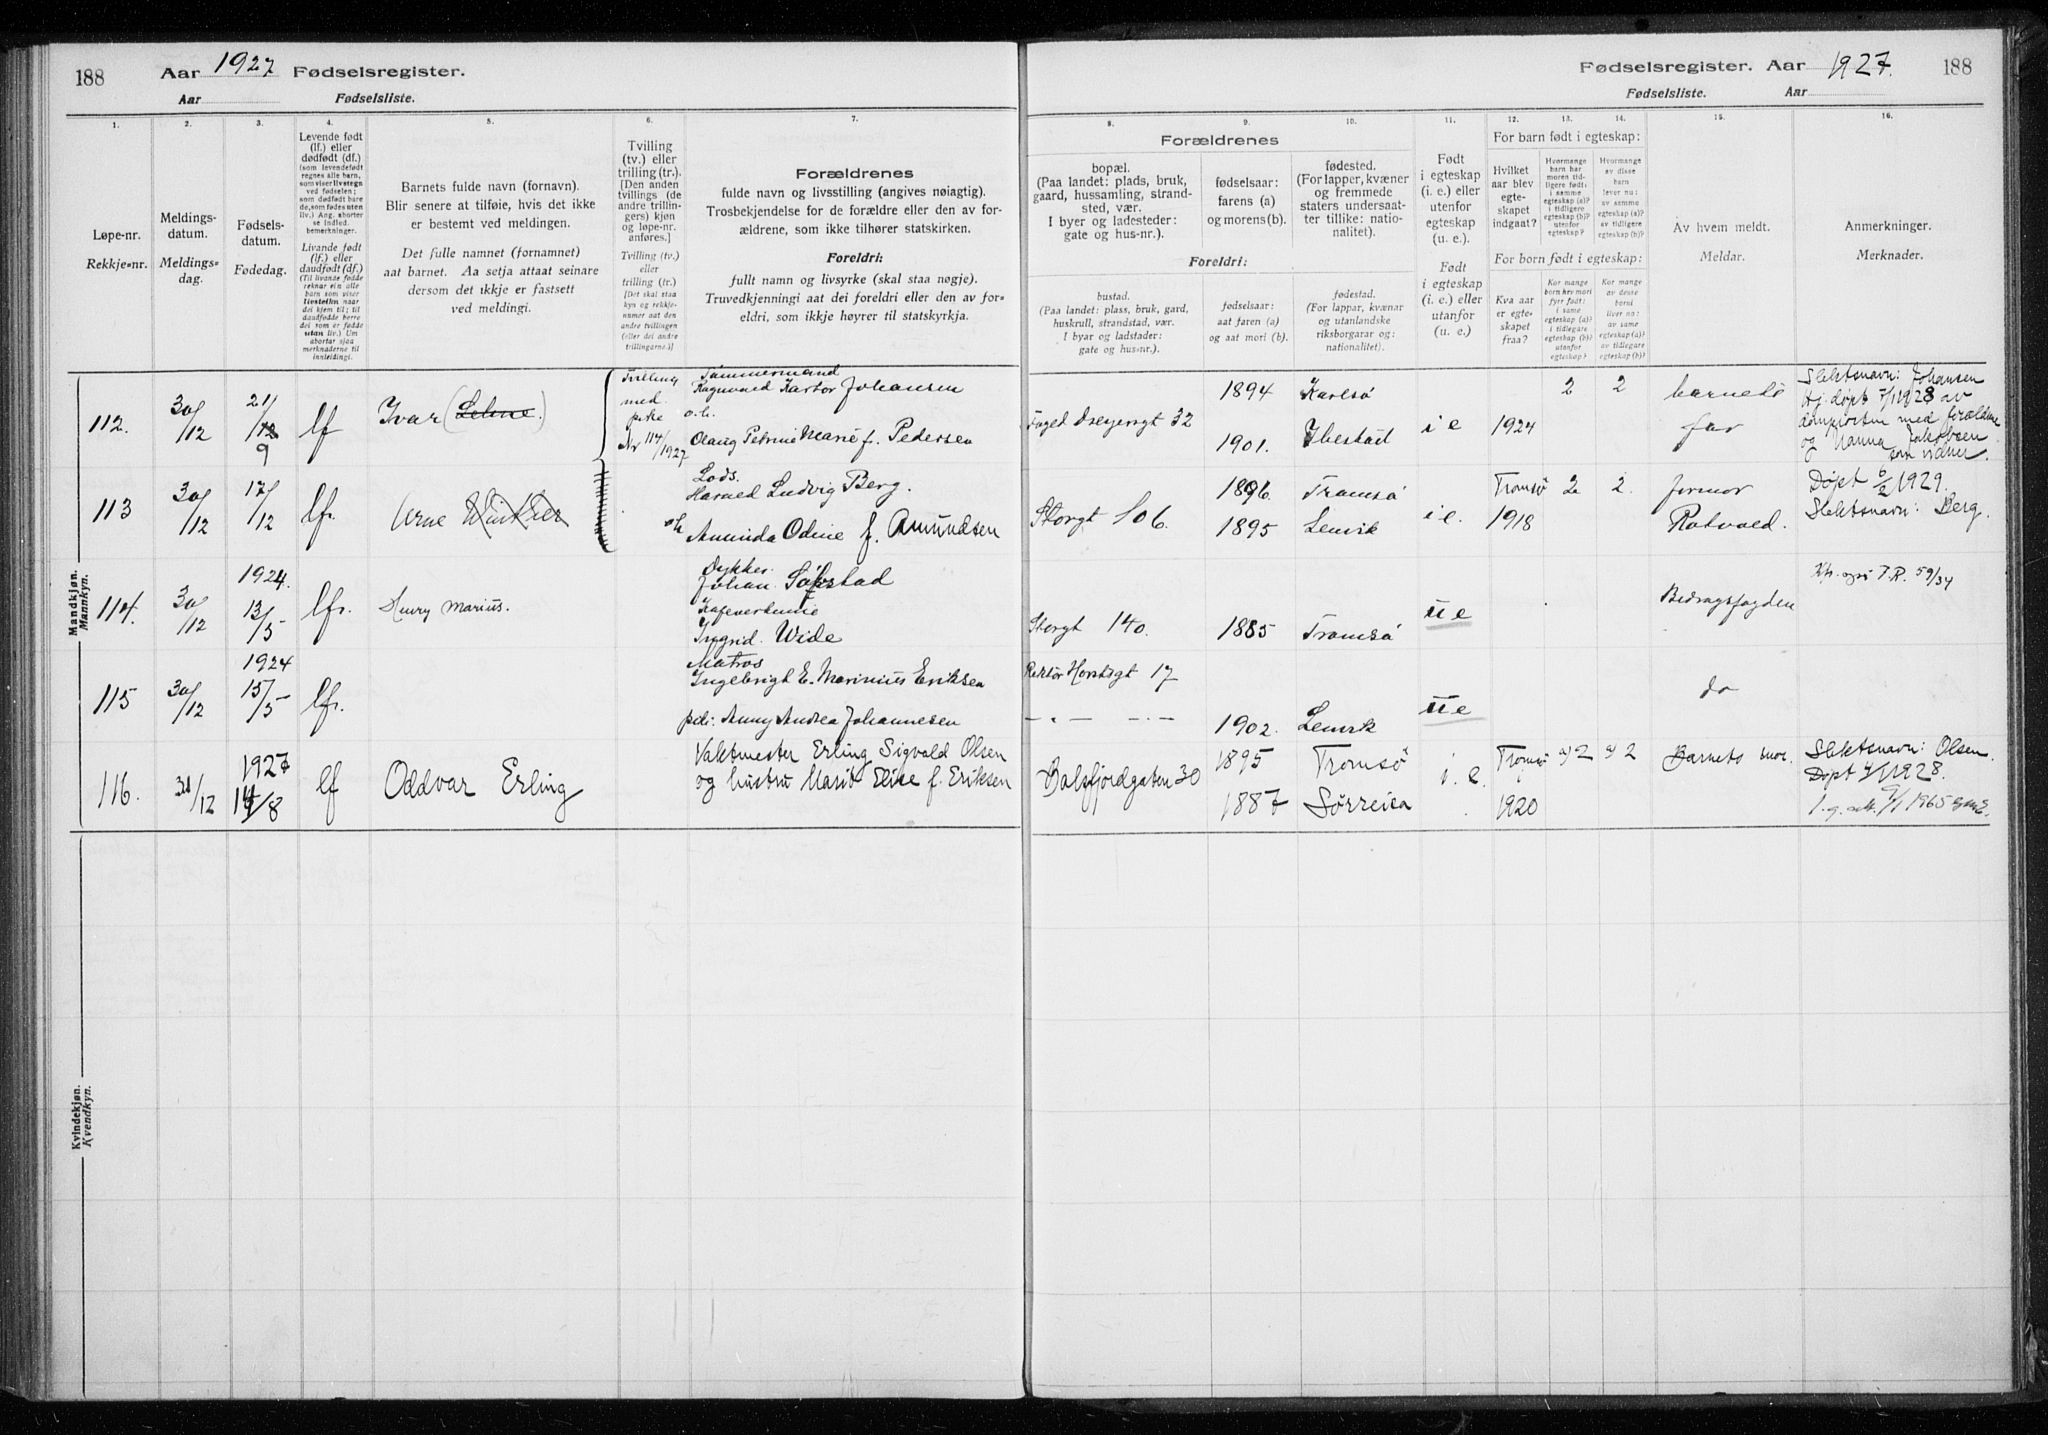 188 Aar 1927 Fødselsregister.
Aar Fødselsliste.
Fødselsregister. Aar 1927. 188
Fødselsliste. Aar
1.
Løpe-nr.
Rekkje-nr.
2.
Meldings-
datum.
Meldings-
dag.
3.
Fødsels-
datum.
Fødedag.
4.
Levende født
(lf.) eller
dødfødt (df.)
(som levendefødt
regnes alle barn,
som viser livstegn
ved fødselen;
som dødfødt bare
de, som fødes uten
liv.) Ang. aborter
se indled.
bemerkninger.
Livande født
(lf.) eller
daudfødt (df.)
(Til livande fødde
reknar ein alle
barn som viser
livsteikn naar
dei kjem til; til
daudfødde berre
dei som er fødde
utan liv.) Um
abortar sjaa
merknaderne til
innleidingi.
5.
Barnets fulde navn (fornavn).
Blir senere at tilføie, hvis det ikke
er bestemt ved meldingen.
Det fulle namnet (fornamnet)
aat barnet. Aa setja attaat seinare
dersom det ikkje er fastsett
ved meldingi.
6.
Tvilling
(tv.) eller
trilling (tr.).
[Den anden
tvillings (de
andre trillin-
gers) kjøn
og løpe-nr.
anføres.]
Tvilling (tv.)
eller
trilling (tr.)
[Det skal staa
kyn og rekkje-
numer aat den
andre tvillingen
(eller dei andre
trillingarne.)]
7.
Forældrenes
fulde navn og livsstilling (angives nøiagtig).
Trosbekjendelse for de forældre eller den av for-
ældrene, som ikke tilhører statskirken.
Foreldri:
fullt namn og livsyrke (skal staa nøgje).
Truvedkjenningi aat dei foreldri eller den av for-
eldri, som ikkje høyrer til statskyrkja.
Forældrenes
8.
bopæl.
(Paa landet: plads, bruk,
gaard, hussamling, strand-
sted, vær.
I byer og ladesteder:
gate og hus-nr.).
9.
fødselsaar:
farens (a)
og morens (b).
10.
fødested.
(For lapper, kvæner
og fremmede
staters undersaat-
ter tillike: natio-
nalitet).
Foreldri:
bustad.
(Paa landet: plass, bruk, gard,
huskrull, strandstad, vær.
I byar og ladstader:
gate og hus-nr.).
fødselsaar:
aat faren (a)
og aat mori (b).
fødestad.
(For lappar, kvænar
og utanlandske
riksborgarar og:
nationalitet).
11.
Født
i egteskap
(i. e.) eller
utenfor
egteskap
(u. e.).
Født
i egteskap
(i. e.) eller
utanfor
(u. e.)
For barn født i egteskap:
12.
Hvilket
aar blev
egte-
skapet
indgaat?
13.
Hvormange
barn har
moren tid-
ligere født:
i samme
egteskap (a)?
i tidligere
egteskap (b)?
utenfor
egteskap?
14.
Hvormange
av disse
barn
lever nu:
av samme
egteskap (a)?
av tidligere
egteskap (b)?
For barn født i egteskap:
Kva aar
er egte-
skapet
fraa?
Kor mange
born hev mori
fyrr født:
i same
egteskap (a)?
i tidlegare
egteskap (b)?
utanfor
egteskap?
Kor mange
av desse
borni
liver no:
av same
egteskap (a)?
av tidlegare
egteskap (b)?
15.
Av hvem meldt.
Meldar.
16.
Anmerkninger.
Merknader.
Mandkjøn.
Mannkyn.
112. 30/12 21/9 lf Ivar
Tvilling
med
pike
Nr 114/1927
Tømmermand
Ragnvald Johansen
o.h.
Olaug Petrine Marie f. Pedersen
32
1894 Karlsø
1901. Ibestad
i e 1924 2 2
barnets
far
Slektsnavn: Johansen
Hj. døpt 5/1 1928 av
med forældrene
og Nanna Jakobsen
som vidner.
113 30/12 17/12 lf. Arne
Lods.
Harald Ludvig Berg.
o/h Amanda Odine f. Amundsen
Storgt 106.
1896. Tromsø
1895 Lenvik
i e. Tromsø
1918 2 2.
formor
Rotvold.
Døpt 6/2 1929.
Slektsnavn: Berg.
114. 30/12 1924. 13/5 lf. Henry Marius.
Dykker.
Johan
Kafeverdinne
Ingrid. Wide
Storgt 140. 1885 Tromsø
u e
Bidragsfogden
Kfr. også T.R. 59/34
115 30/12 1924 15/5 lf.
Matros
Ingebrigt E. Marinius Eriksen
pike: Anny Andrea Johannesen
Rektor Horstsgt 17
– „ – – „ – 1902. Lenvik
u e
do
116. 31/12 1927 14/8 lf Oddvar Erling
Vaktmester Erling Sigvald Olsen
og hustru Marit Elise f. Eriksen
Balsfjordgaten 30
1895 Tromsø
1887 Sørreisa
i. e. Tromsø
1920 a) 2 a) 2
Barnets mor.
Slektsnavn: Olsen.
Døpt 4/1 1928.
1965
Kvindekjøn.
Kvendkyn.